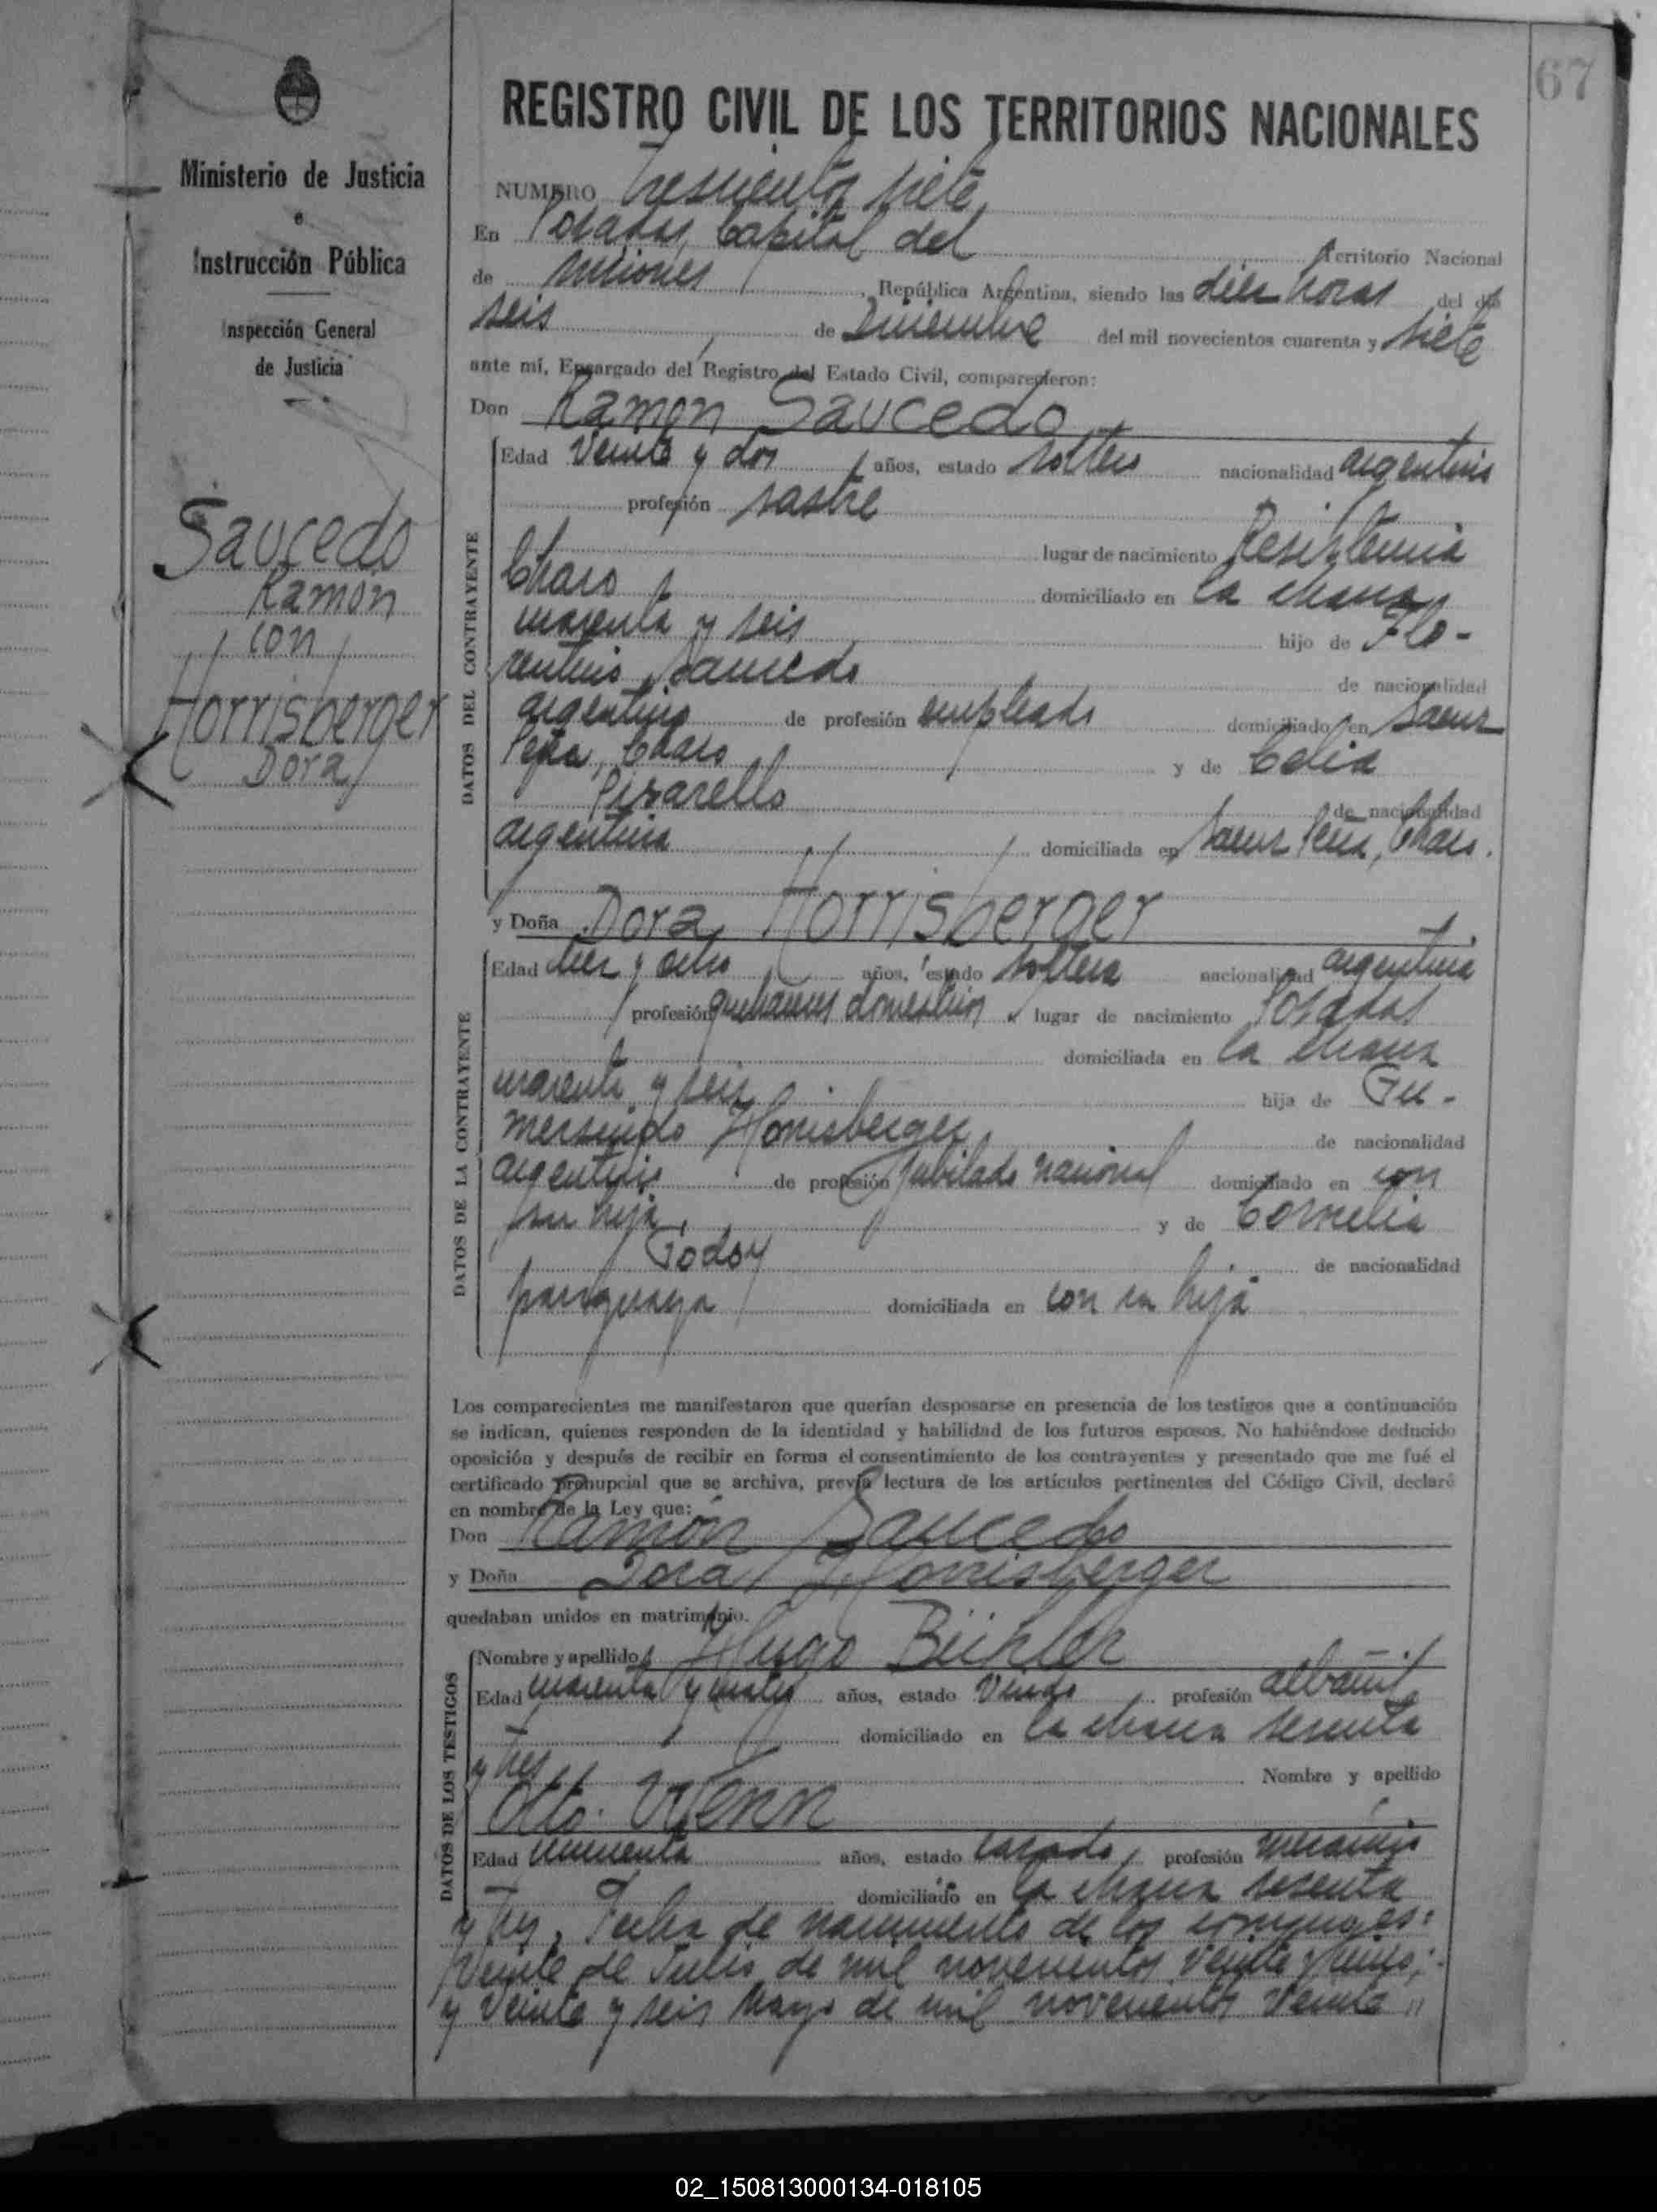 67
Ministerio de Justicia
e
Instrucción Pública
Inspección General
de Justicia
Saucedo
Ramón
con
Horrisberger
Dora
REGISTRO CIVIL DE LOS TERRITORIOS NACIONALES
NUMERO Trescientos siete
En Posadas, Capital del Territorio Nacional
de Misiones, República Argentina, siendo las diez horas del día
seis de Diciembre del mil novecientos cuarenta y siete
ante mí, Encargado del Registro del Estado Civil, comparecieron:
Don Ramón Saucedo
DATOS DEL CONTRAYENTE
Edad Veinte y dos años, estado soltero nacionalidad argentino
profesión sastre
lugar de nacimiento Resistencia
Chaco domiciliado en la chacra
cuarenta y seis hijo de Flo-
rentino Saucedo de nacionalidad
argentino de profesión empleado domiciliado en Saenz
Peña, Chaco y de Celia
Pisarello de nacionalidad
argentina domiciliada en Saenz Peña, Chaco.
y Doña Dora Horrisberger
DATOS DE LA CONTRAYENTE
Edad diez y ocho años, estado soltera nacionalidad argentina
profesión quehaceres domésticos lugar de nacimiento Posadas
domiciliada en la chacra
cuarenta y seis hija de Gu-
mersindo Horrisberger de nacionalidad
argentino de profesión Jubilado nacional domiciliado en con
su hija, y de Cornelia
Godoy de nacionalidad
paraguaya domiciliada en con su hija
Los comparecientes me manifestaron que querían desposarse en presencia de los testigos que a continuación
se indican, quienes responden de la identidad y habilidad de los futuros esposos. No habiéndose deducido
oposición y después de recibir en forma el consentimiento de los contrayentes y presentado que me fué el
certificado prenupcial que se archiva, previa lectura de los artículos pertinentes del Código Civil, declaré
en nombre de la Ley que:
Don Ramón Saucedo
y Doña Dora Horrisberger
quedaban unidos en matrimonio.
DATOS DE LOS TESTIGOS
Nombre y apellido Hugo Bühler
Edad cuarenta y cuatro años, estado Viudo profesión albañil
domiciliado en la chacra sesenta
y tres Nombre y apellido
Otto Wenn
Edad cincuenta años, estado casado, profesión mecánico
domiciliado en la chacra sesenta
y tres. Fecha de nacimiento de los cónyuges:
Veinte de Julio de mil novecientos veinte y cinco;
y Veinte y seis Mayo de mil novecientos veinte
02_150813000134-018105